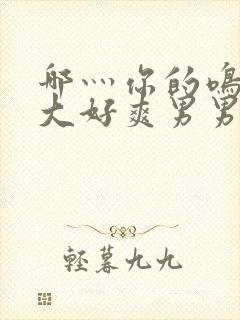 哪灬你的鳴
大好爽男男
輕暮九九